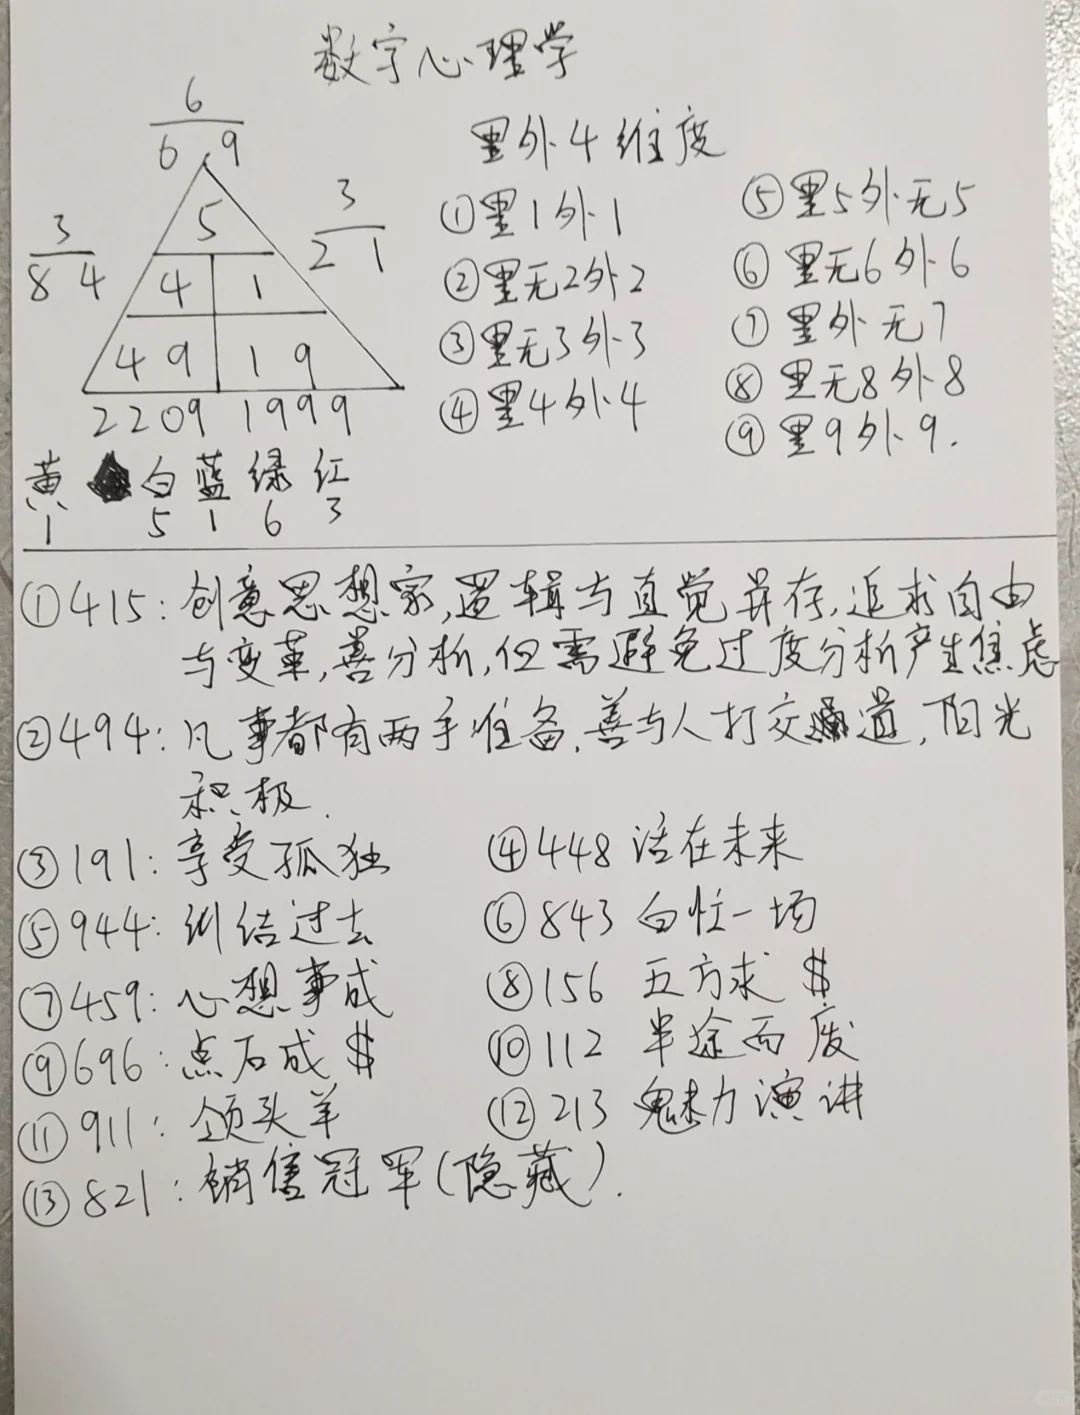 数字心理学
6
6 9
3
8 4
3
2 1
5
4 1
4 9 1 9
2209 1999
黄 白 蓝 绿 红
1 5 1 6 3
里外4维度
①里1外1
②里无2外2
③里无3外3
④里4外4
⑤里5外无5
⑥里无6外6
⑦里外无7
⑧里无8外8
⑨里9外9.
①415:创意思想家,逻辑与直觉并存,追求自由
与变革,善分析,但需避免过度分析产生焦虑
②494:凡事都有两手准备.善与人打交道,阳光
积极.
③191:享受孤独 ④448 活在未来
⑤944:纠结过去 ⑥843 白忙一场
⑦459:心想事成 ⑧156 五方求$
⑨696:点石成$ ⑩112 半途而废
⑪911:领头羊 ⑫213 魅力演讲
⑬821:销售冠军(隐藏).